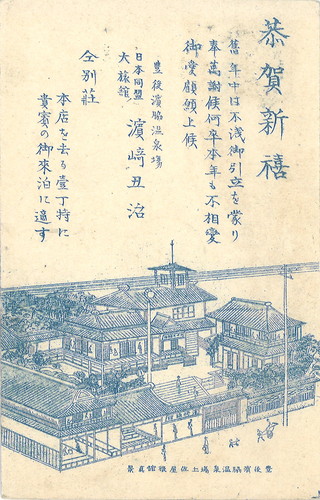 恭賀新禧
舊年中は不浅御引立を蒙り
奉萬謝候何卒本年も不相變
御愛顧願上候
豊後濱脇温泉場
日本同盟
大旅館
濵﨑丑治
仝別荘
本店を去る壹丁特に
貴賓の御來泊に適す
豊後濱脇温泉場上
屋旅館真景